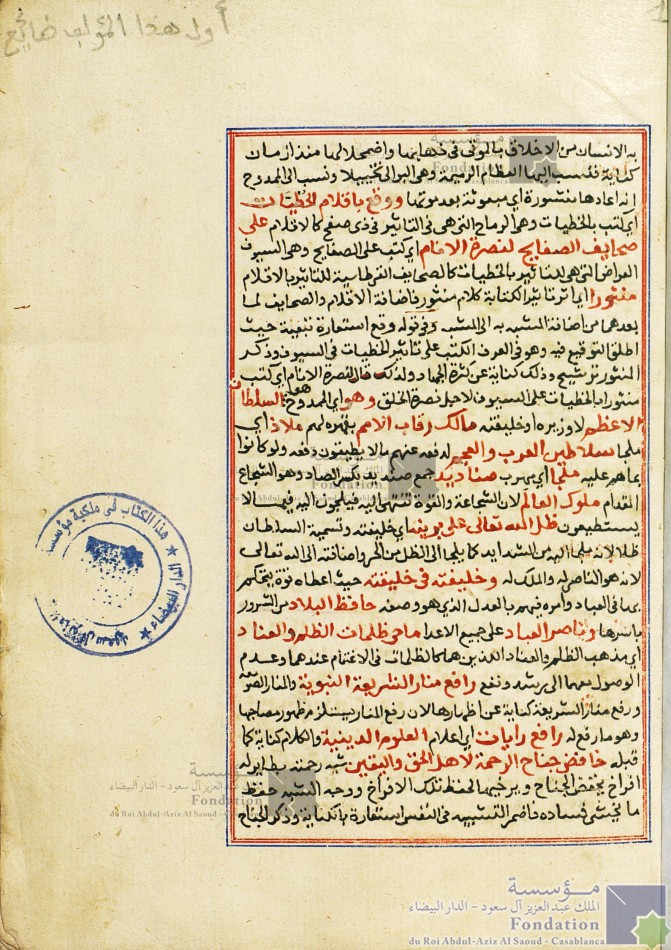 أول هذا المؤلف ضائع
1
به الانسان من الاخلاق بالموتى فى ذهابها واضمحلالها منذ ازمان
كناية فنسب اليها العظام الرميمة وهى البوالى تخييلا ونسب الى الممدوح
انه اعادها منشورة اى مبعوثة بعد موتها ووقع باقلام الخطيات
اى كتب بالخطيات وهى الرماح التى هى فى التاثير فى ذى صنع كالاقلام على
صحايف الصفايح لنصرة الامام اى كتب على الصفايح وهى السيوف
العراض التى هى للتاثير بالخطيات كالصحايف القرطاسية للتاثير بالاقلام
منثورا اى اثر تاثير الكتابة كلام منثور فاضافة الاقلام والصحايف لما
بعدهما من اضافة المشبه به الى المشبه وفى قوله وقع استعارة تبعية حيث
اطلق التوقيع فيه وهو فى العرف الكتب على تاثير الخطيات فى السيوف وذكر
المنثور ترشيح وذلك كناية عن كثرة الجهاد ولذلك قال لنصرة الامام اى كتب
منثورا بالخطيات على السيوف لاجل نصرة الخلق وهو اى الممدوح هو السلطان
الاعظم لاوزيره او خليفته مالك رقاب الامم بقهره لهم ملاذ اى
ملجا سلاطين العرب والعجم لدفعه عنهم مالا يطيقون دفعه ولو كانوا
بما هم عليه ملجا اى مهرب صناديد جمع صنديد بكسر الصاد وهو الشجاع
المقدام ملوك العالم لان الشجاعة والقوة تنتهى اليه فيلجون اليه فيما لا
يستطيعون ظل الله تعالى على بريته اى خليفته وتسمية السلطان
ظلا لانه يلجا اليه من الشدايد كما يلجا الى الظل من الحر واضافته الى الله تعالى
لانه هو الناصر له والملك له وخليفته فى خليقته حيث اعطاه قوة يتحكم
بها فى العباد وامره فيهم بالعدل الذى هو وصفه حافظ البلاد من الشرور
باسرها وناصر العباد على جميع الاعدا ماحى ظلمات الظلم والعناد
اى مذهب الظلم والعناد اللذين هما كالظلمات فى الاغتمام عندهما وعدم
الوصول معهما الى رشد ونفع رافع منار الشريعة النبوية والمنار الضو
ورفع منار الشريعة كناية عن اظهارها لان رفع المنار يستلزم ظهور مصاحبها
وهو ما رفع له رافع رايات اى اعلام العلوم الدينية والكلام كناية كما
قبله خافض جناح الرحمة لاهل الحق واليقين شبه رحمته بطاير له
افراخ يخفض الجناح ويرخيها لحفظ تلك الافراخ ووجه الشبه حفظ
ما يخشى فساده فاضمر التشبيه فى النفس استعارة بالكناية وذكر الجناح
هذا الكتاب في ملكية مؤسسة
البيضاء
مؤسسة
الملك عبد العزيز آل سعود - الدار البيضاء
Fondation
du Roi Abdul-Aziz Al Saoud - Casablanca